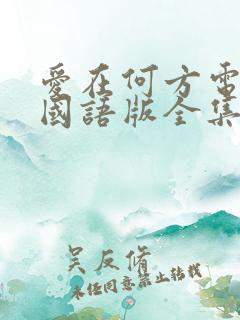 愛在何方電
國語版全集
吴反脩
未经同意禁止转载